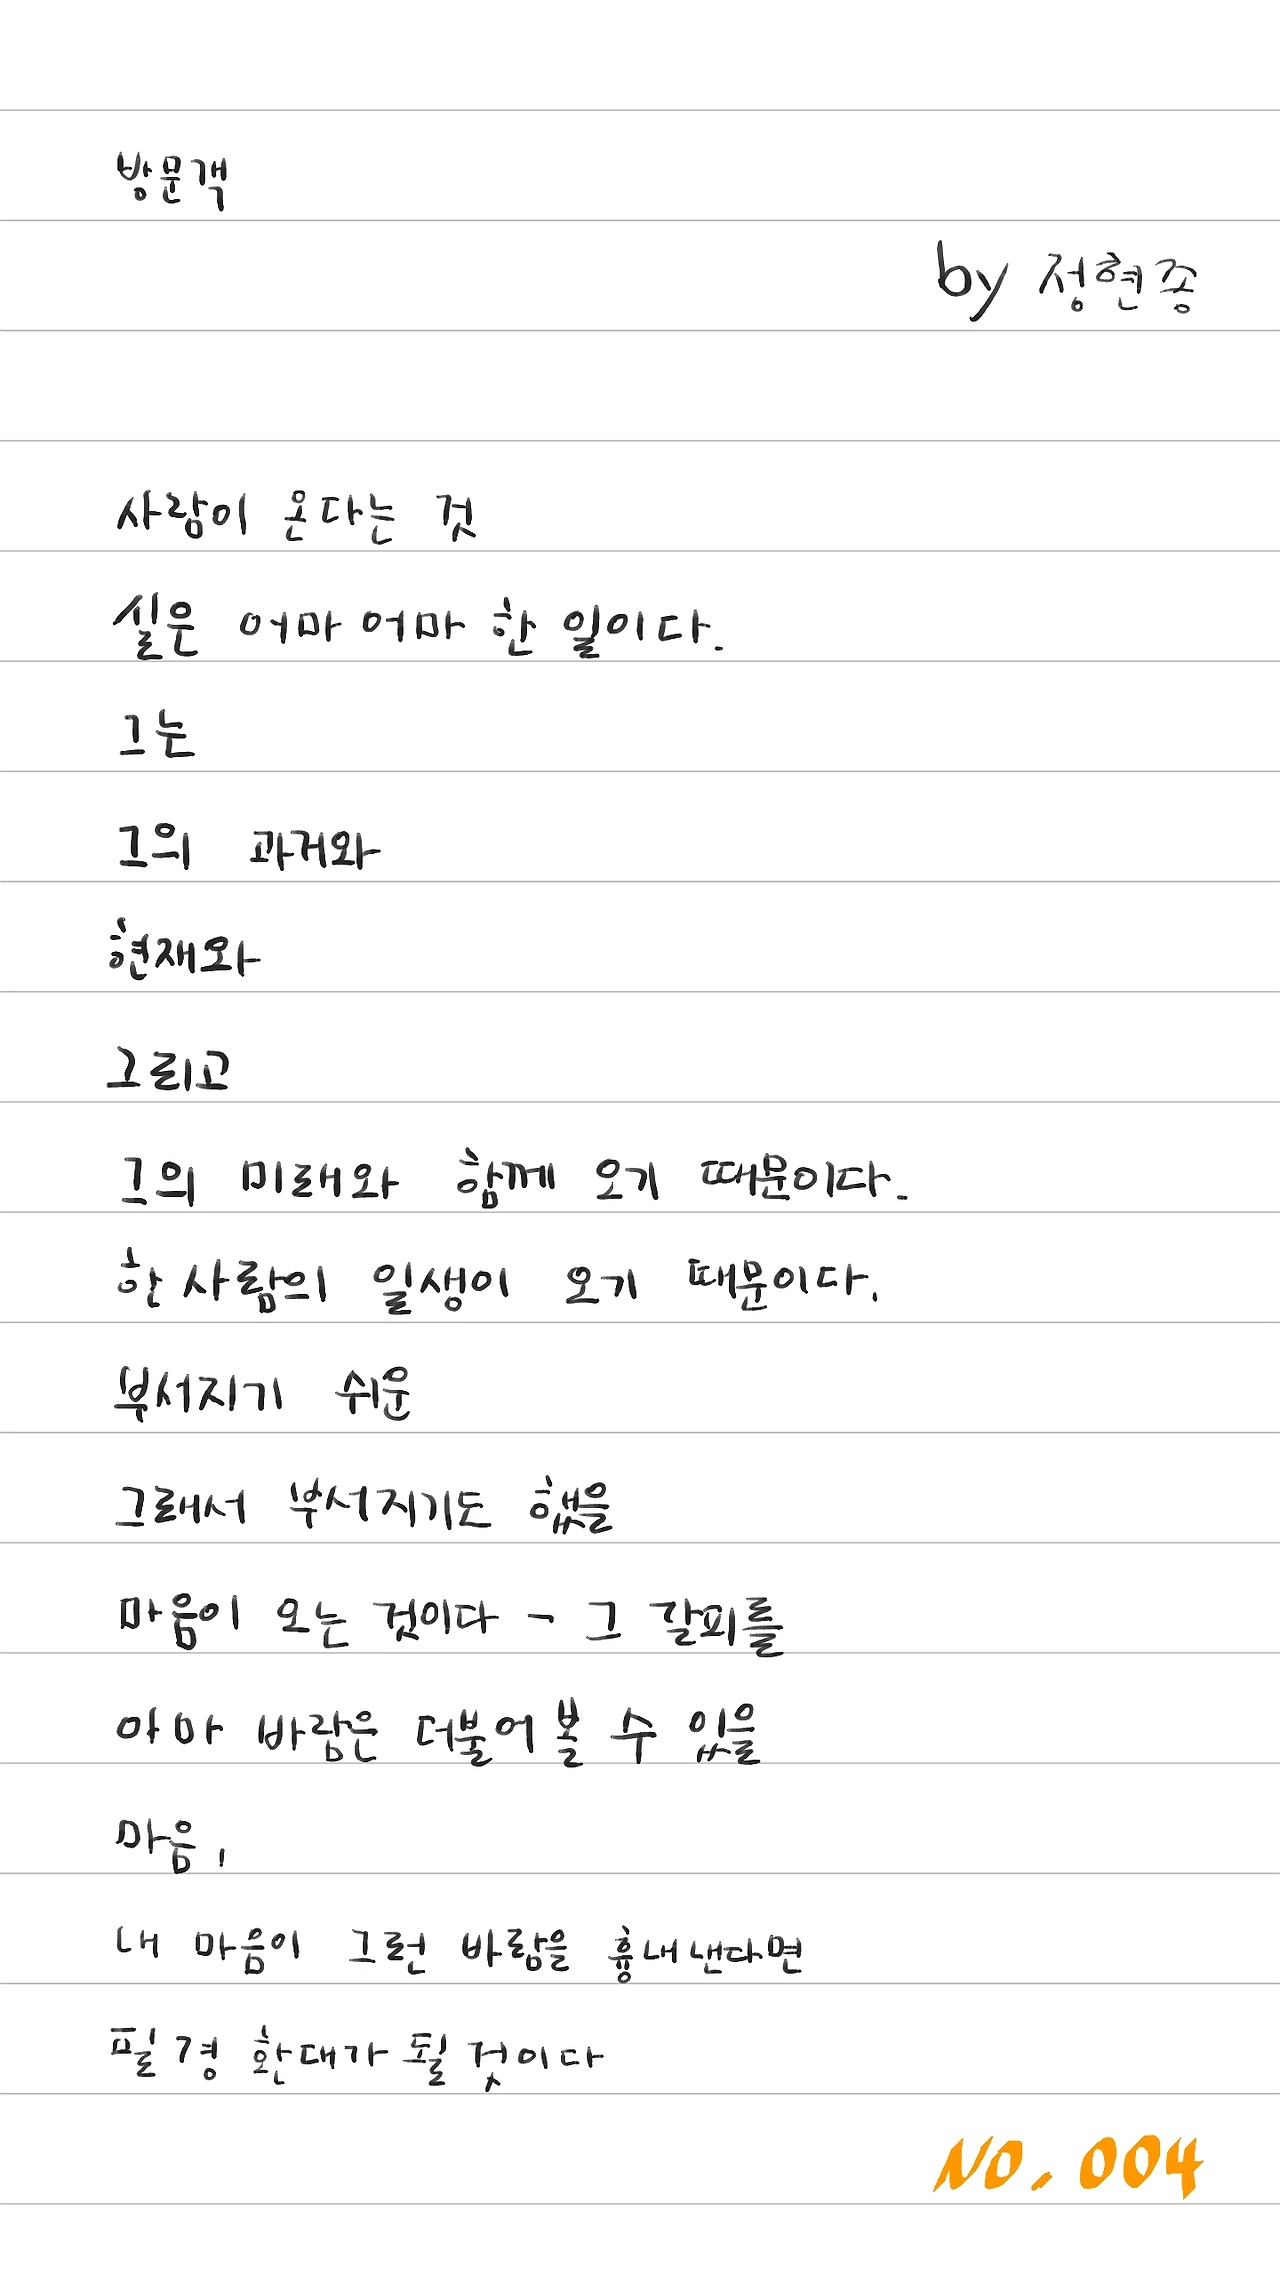 방문객
by 정현종
사람이 온다는 것
실은 어마어마 한 일이다.
그는
그의 과거와
현재와
그리고
그의 미래와 함께 오기 때문이다.
한 사람의 일생이 오기 때문이다.
부서지기 쉬운
그래서 부서지기도 했을
마음이 오는 것이다 - 그 갈피를
아마 바람은 더불어 볼 수 있을
마음,
내 마음이 그런 바람을 흉내 낸다면
필경 환대가 될 것이다
NO. 004